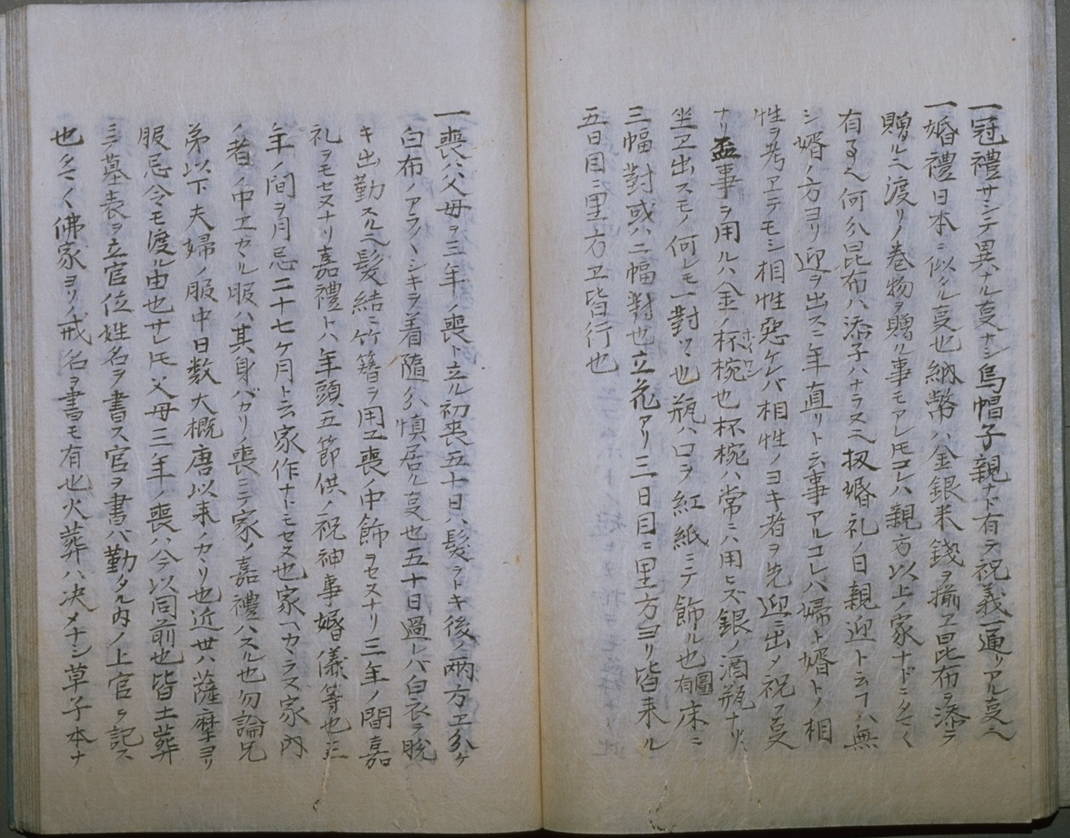 一冠禮サシテ異ナル叓ナシ烏帽子親ナト有テ祝義一通リアル叓ヘ
一婚禮日本ニ似タル叓也納幣ハ金銀米錢ヲ揃ヱ昆布ヲ添テ
贈ルヘ渡リノ巻物ヲ贈ル事モアレ𪜈コレハ親方以上ノ家ナドニタマ〱
有ルヘ何分昆布ハ添子ハナラスヘ扨婚礼ノ日親迎ト云フハ無
シ婿ノ方ヨリ迎ヲ出ス二年直リト云事アルコレハ婦ト婿トノ相
性ヲ考ヱテモシ相性惡ケレバ相性ノヨキ者ヲ先迎ニ出メ祝フ叓
ナリ盃事ヲ用ルハ金ノ杯椀也杯椀ハ常ニハ用ヒズ銀ノ酒瓶ナリ
坐ヱ出スモノ何レモ一對ツヽ也瓶ハ口ヲ紅紙ニテ飾ル也圖有床ニ
三幅對或ハ二幅對也立花アリ三日目ニ里方ヨリ皆来ル
五日目ニ里方ヱ皆行也
一喪ハ父母ヲ三年ノ喪ト立ル初喪五十日ハ髪ヲトキ後ノ両方ヱ分ケ
白布ノアラ〱シキヲ着隨分慎居ル叓也五十日過レバ白衣ヲ脱
キ出勤スルヘ髪結ニ竹簪ヲ用ヱ喪ノ中飾ヲセヌナリ三年ノ間嘉
礼ヲモセヌナリ嘉禮トハ年頭五節供ノ祝神事婚儀等也三
年ノ間ヲ月忌二十七ケ月ト云家作ナトモセヌ也家ヘカヽラヌ家内
ノ者ノ中ヱカヽル服ハ其身バカリノ喪ニテ家ノ嘉禮ハスル也勿論兄
弟以下夫婦ノ服中日数大概唐以来ノカヽリ也近世ハ薩摩ヨリ
服忌令モ渡ル由也サレ𪜈父母三年ノ喪ハ今以同前也皆土葬
ニテ墓表ヲ立官位姓名ヲ書ス官ヲ書ハ勤タル内ノ上官ヲ記ス
也タマ〱佛家ヨリノ戒名ヲ書モ有也火葬ハ决メナシ草子本ナ